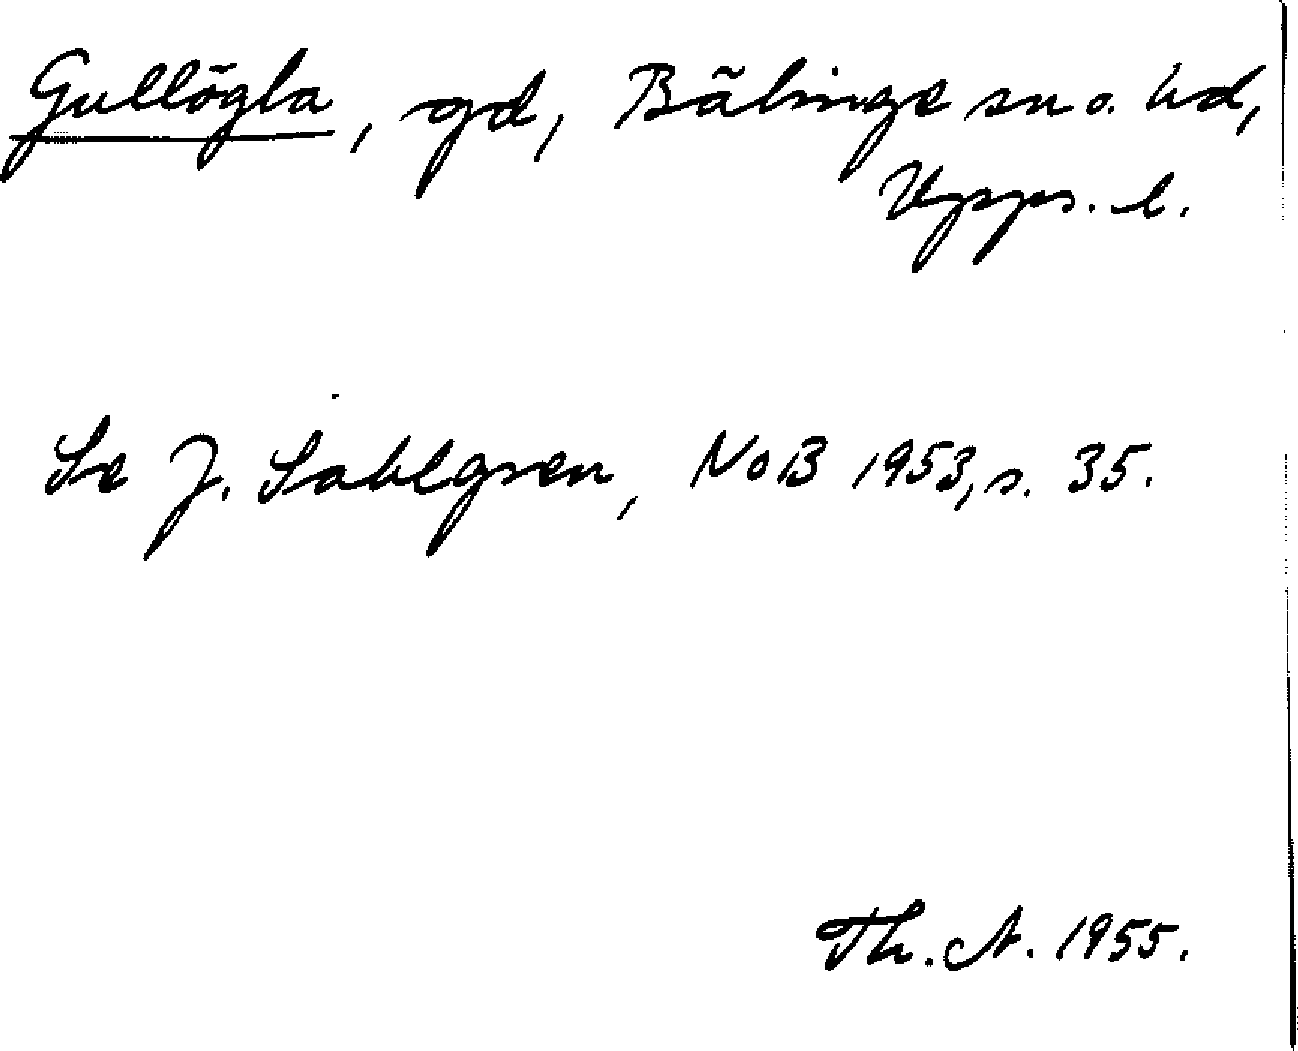 Gullögla, gd, Bälinge sn o. hd,
Upps. l.
Se J. Sahlgren, NoB 1953, s. 35.
Th. A. 1955.